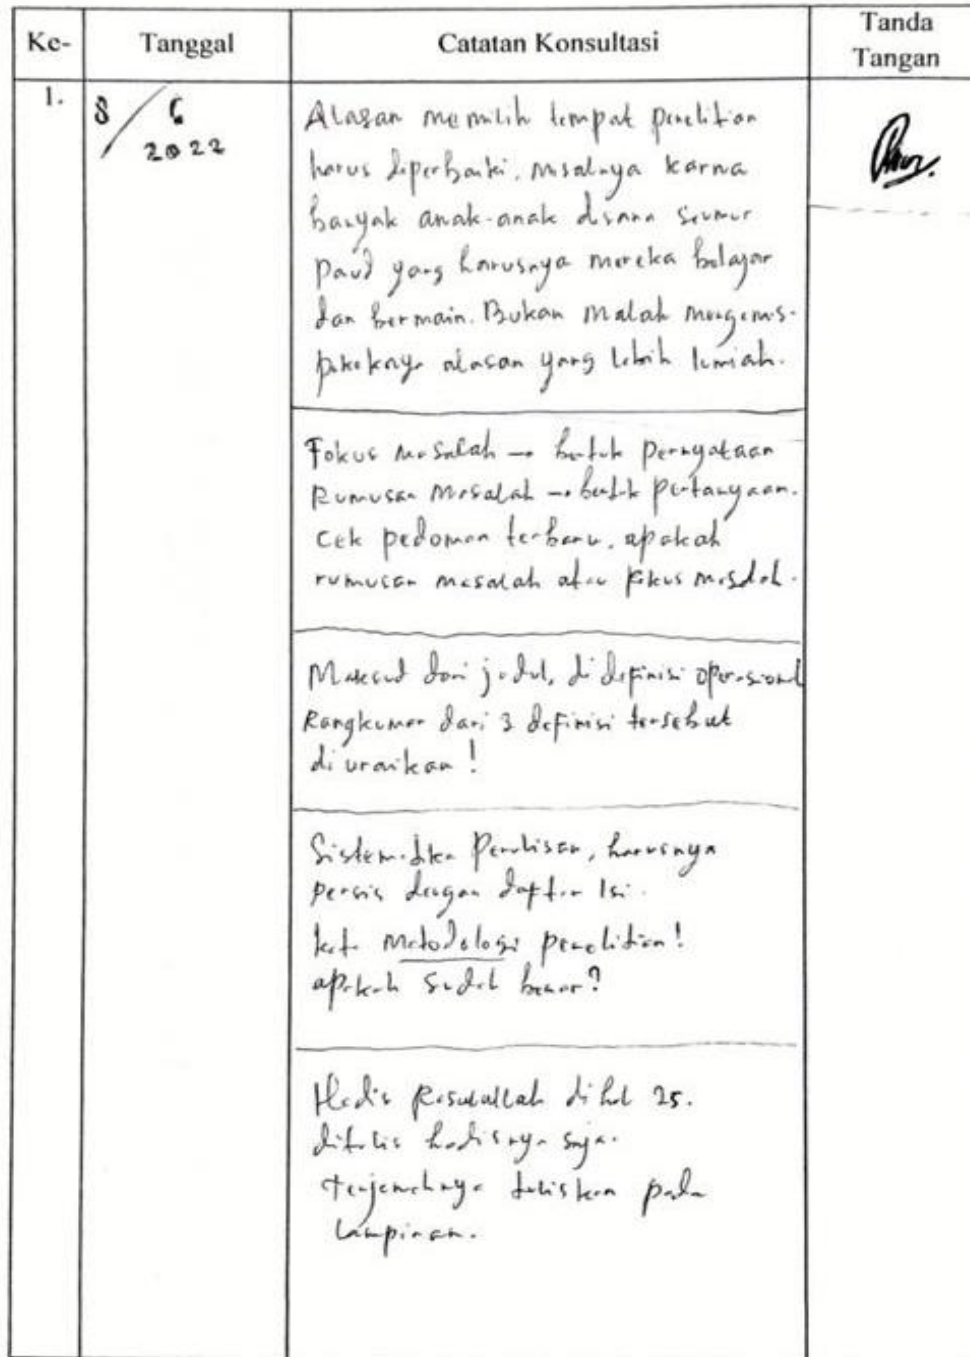 Ke-
Tanggal
Catatan Konsultasi
Tanda
Tangan
1.
8/6
2022
Alasan memilih tempat penelitian
harus diperbaiki, misalnya karna
banyak anak-anak disana seumur
Paud yang harusnya mereka belajar
dan bermain. Bukan malah mengemis.
pokoknya alasan yang lebih ilmiah.
Fokus masalah → bentuk pernyataan
Rumusan masalah → bentuk pertanyaan.
Cek pedoman terbaru, apakah
rumusan masalah atau fokus masalah.
Maksud dari judul, di definisi operasional
Rangkuman dari 3 definisi tersebut
di uraikan!
Sistematika Penulisan, harusnya
persis dengan daftar Isi.
kata Metodologi penelitian!
apakah sudah benar?
Hadis Rasulallah di hal 25.
ditulis hadisnya saja.
terjemahnya tuliskan pada
Lampiran.